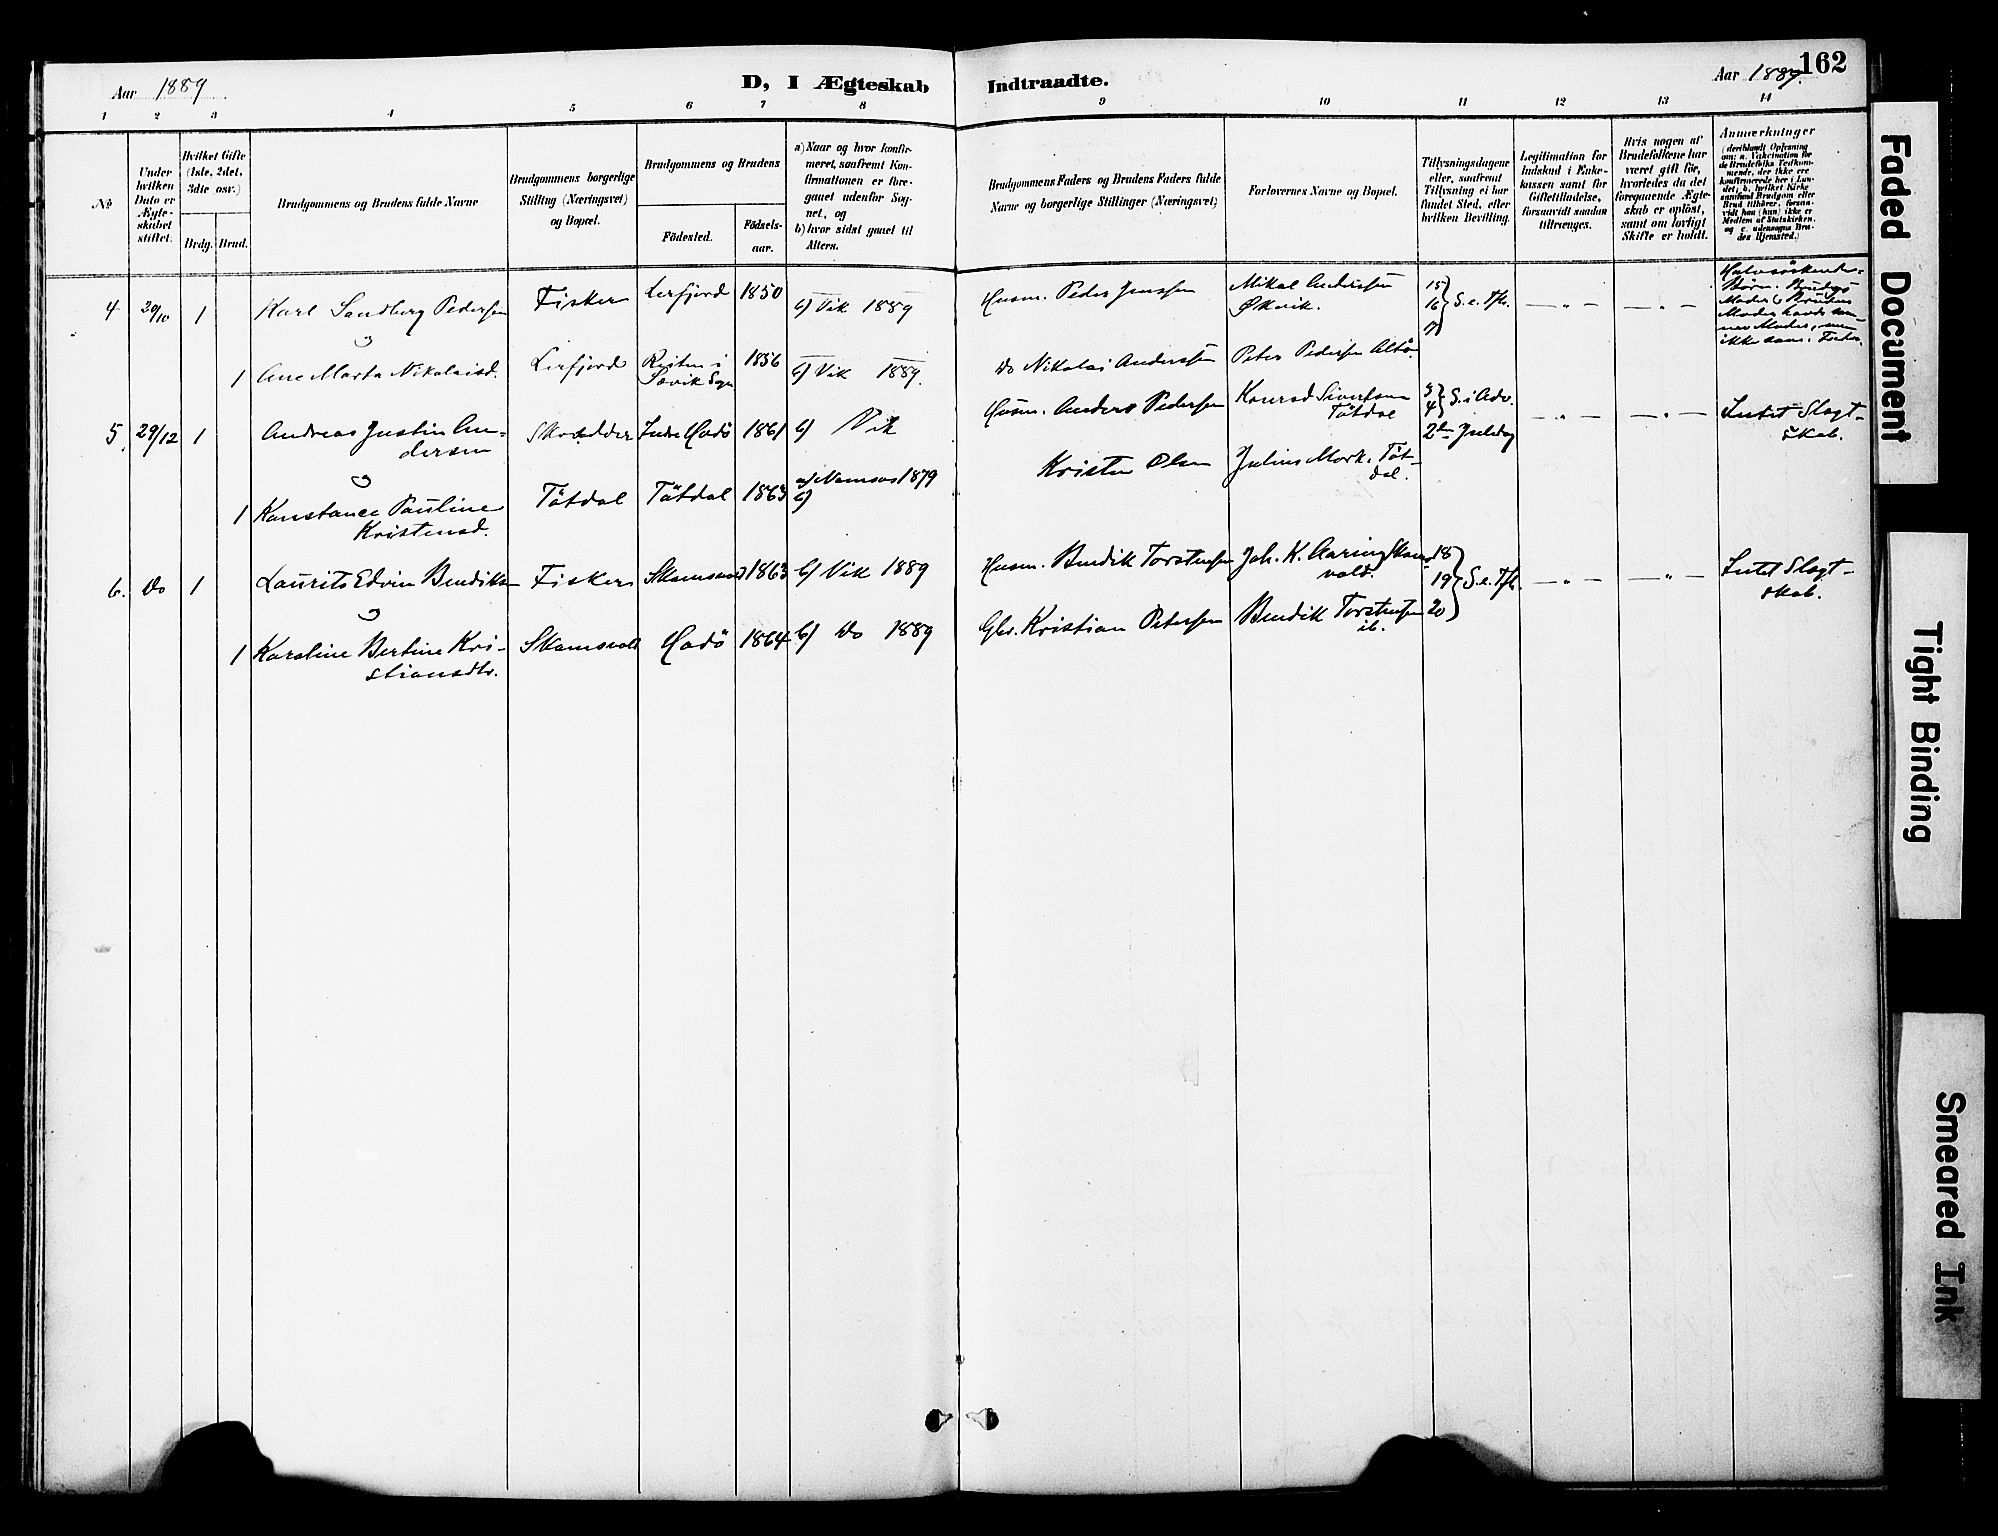 162
Aar 1889
D, I Ægteskab Indtraadte.
Aar 1889.
1 2 3 4 5 6 7 8 9 10 11 12 13 14
No
Under hvilken Dato er Ægte-skabet stiftet.
Hvilket Gifte (1ste, 2det, 3die osv.)
Brdg. Brud.
Brudgommens og Brudens fulde Navne
Brudgommens borgerlige Stilling (Næringsvei) og Bopæl.
Brudgommens og Brudens
Fødested.
Fødsels-aar.
a) Naar og hvor konfir-meret, saafremt Kon-firmationen er fore-gaaet udenfor Sog-net, og
b) hvor sidst gaaet til Alters.
Brudgommens Faders og Brudens Faders fulde Navne og borgerlige Stillinger (Næringsvei)
Forlovernes Navne og Bopæl.
Tillysningsdagene eller, saafremt Tillysning ei har fundet Sted, efter hvilken Bevilling.
Legitimation for Indskud i Enke-kassen samt for Giftetilladelse, forsaavidt saadan tiltrænges.
Hvis nogen af Brudefolkene har været gift før, hvorledes da det foregaaende Ægte-skab er opløst, samt om lovligt Skifte er holdt.
Anmærkninger (deriblandt Oplysning om: a. Vakcination for de Brudefolks Vedkom-mende, der ikke ere konfirmerede her i Lan-det; b. hvilket Kirke-samfund Brudgom eller Brud tilhører, forsaa-vidt han (hun) ikke er Medlem af Statskirken, og c. udensogns Bru-des Hjemsted.)
4 20/10 1 Karl Sandberg Pedersen Fisker Lerfjord 1850 b) Vik 1889 Husm. Peder Jenssen Mikal Andersen Økvik. 15 16 17 } S. e. Tfh. — " — — " — Halvsöskende-Börn. Brudgs Moder & Brudens Moder havde sam-me Moder, men ikke sam. Fader.
og
1 Ane Marta Nikolaisd. Lerfjord 1856 b) Vik 1889. Do Nikolai Anderssen Peter Pedersen Altö
5. 29/12 1 Andreas Justin An-dersen Skrædder Indre Hadö 1861 b) Vik Husm. Anders Pedersen Konrad Sivertsen Tötdal 3 4 } S. i Adv. 2den Juledag — " — — " — Intet Slægt-skab.
og
1 Konstance Pauline Kristensd. Tötdal Tötdal 1863 a) Namsos 1879 b) Kristen Olsen Julius Mork. Töt-dal.
6. Do 1 Laurits Edvin Bendiksen Fisker Skomsvold 1863 b) Vik 1889 Husm. Bendik Torstensen Joh. K. Aaring Skoms-vold. 18 19 20 } S. e. Tfh. — " — — " — Intet Slægt-skab.
og
1 Karoline Bertine Kri-stiansdtr. Skomsvold Hadö 1864 b) Do 1889 Gbr. Kristian Petersen Bendik Torstensen ib.
Faded Document
Tight Binding
Smeared Ink